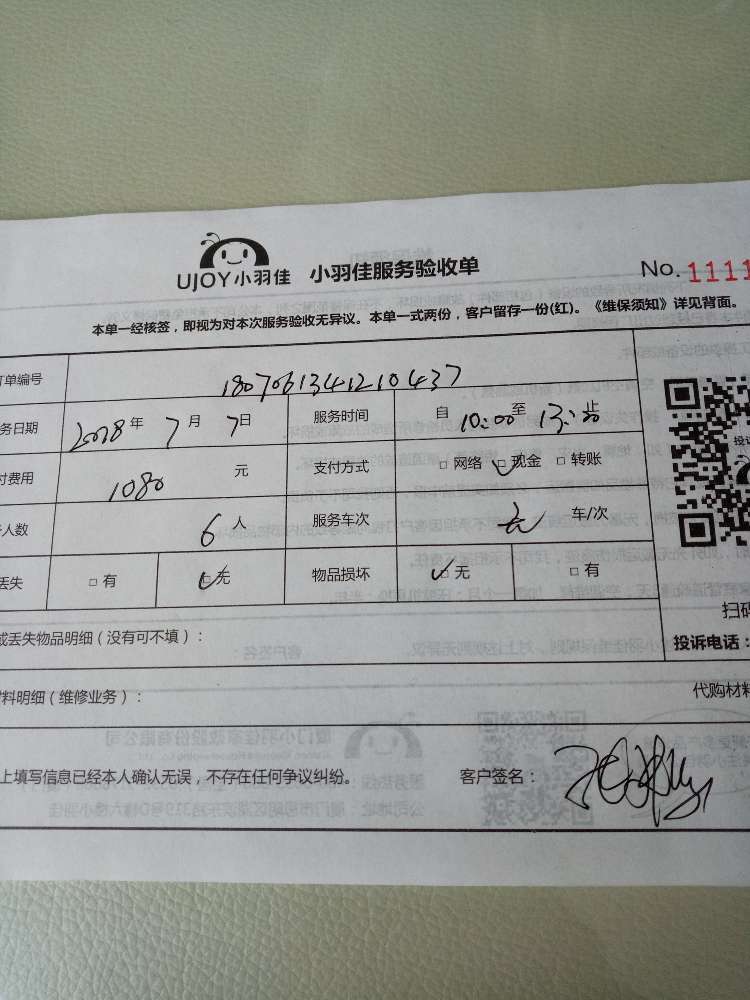 UJOY小羽佳 小羽佳服务验收单 No.1111
本单一经核签，即视为对本次服务验收无异议。本单一式两份，客户留存一份(红)。《维保须知》详见背面。
订单编号 1807061341210437
务日期 2018年7月7日 服务时间 自10:00至13:00止
付费用 1080元 支付方式 □网络 □现金 □转账
人数 6人 服务车次 车/次
丢失 □有 □无 物品损坏 □无 □有
或丢失物品明细（没有可不填）：
扫码
投诉电话：
材料明细（维修业务）： 代购材料
上填写信息已经本人确认无误，不存在任何争议纠纷。 客户签名：